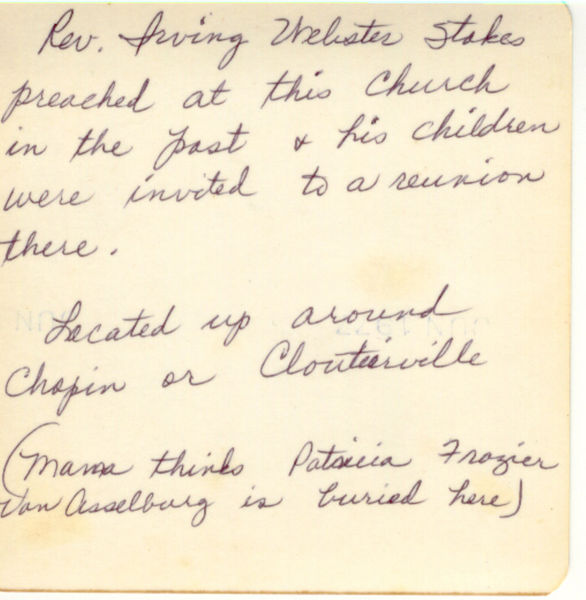 Rev. Irving Webster Stakes
preached at this Church
in the past & his children
were invited to a reunion
there.
Located up around
Chopin or Cloutierville
(Mama thinks Patricia Frazier
Van Asselburg is buried here)